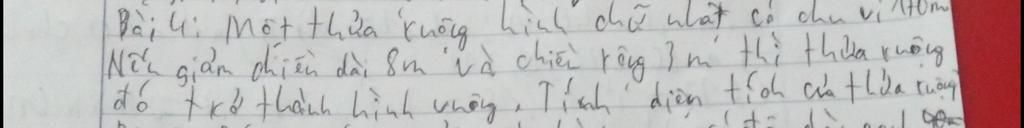 Bài 4: Một thửa ruộng hình chữ nhật có chu vi 110m
Nếu giảm chiều dài 8m và chiều rộng 3m thì thửa ruộng
đó trở thành hình vuông. Tính diện tích của thửa ruộng